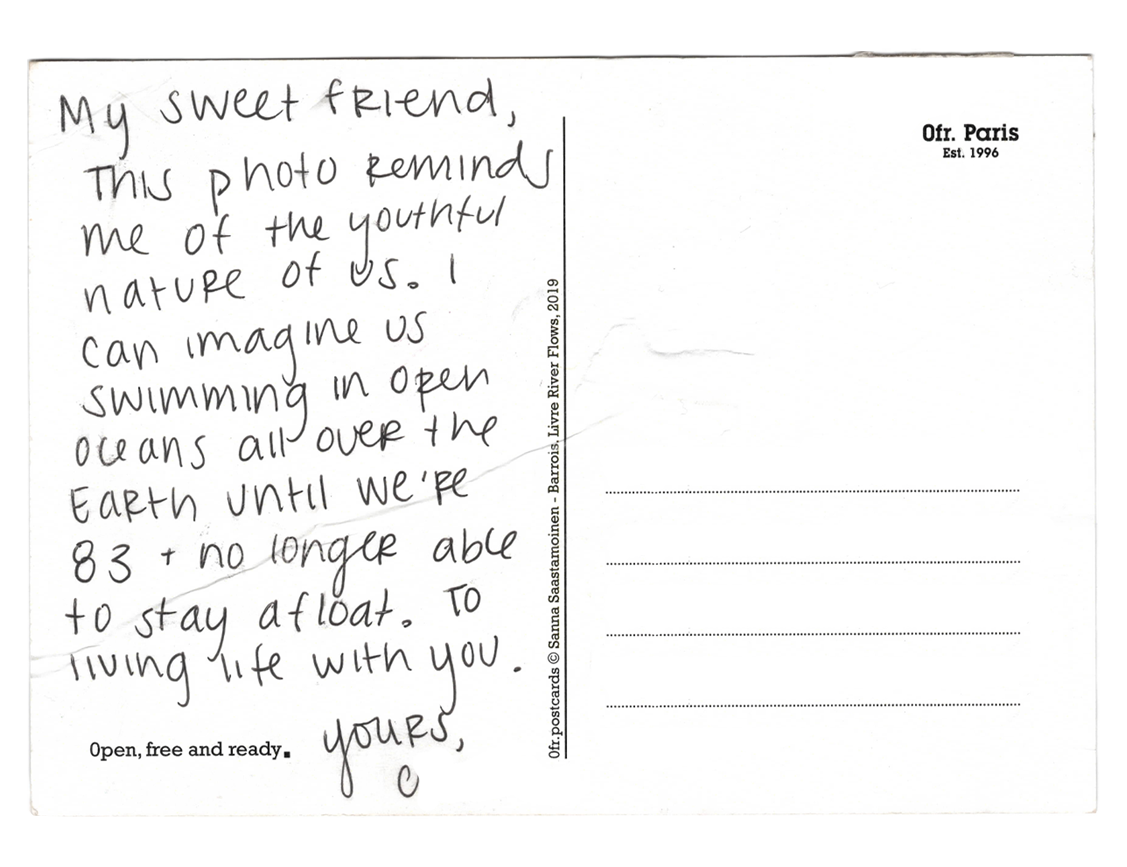 My sweet friend,
This photo reminds
me of the youthful
nature of us. I
can imagine us
swimming in open
oceans all over the
Earth until we're
83 + no longer able
to stay afloat. To
living life with you.
yours,
C
Open, free and ready.
Ofr.postcards © Sanna Saastamoinen - Barrois, Livre River Flows, 2019
Ofr. Paris
Est. 1996